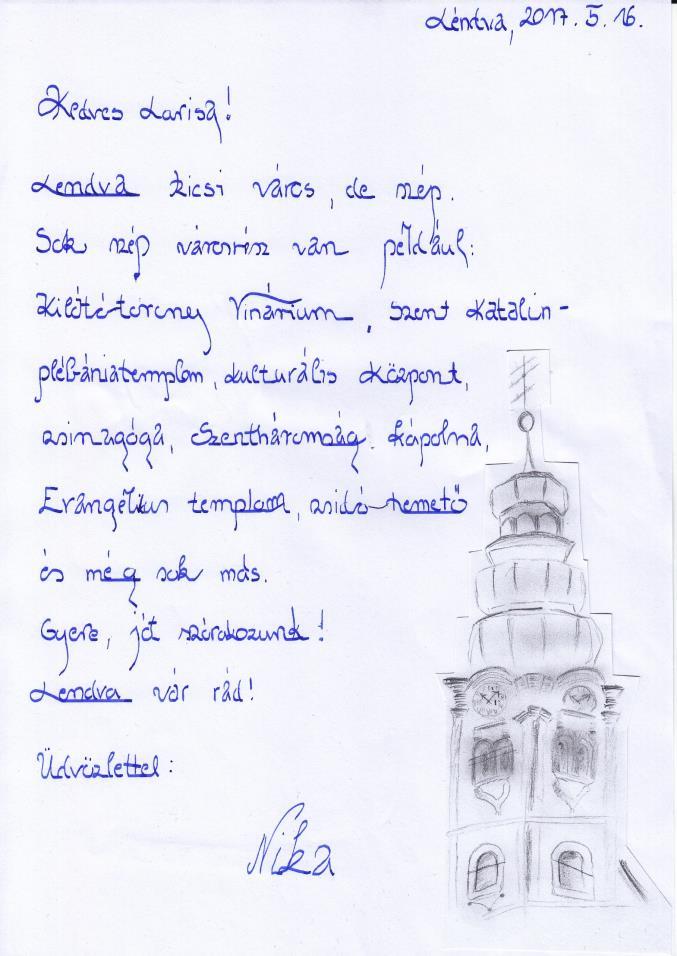 Lendva, 2017. 5. 16.
Kedves Larisa!
Lendva kicsi város, de szép.
Sok szép városrész van például:
Kilátótorony Vinárium, Szent Katalin-
plébániatemplom, kulturális központ,
zsinagóga, Szentháromság kápolna,
Evangélikus templom, zsidó temető
és még sok más.
Gyere, jót szórakozunk!
Lendva vár rád!
Üdvözlettel:
Nika